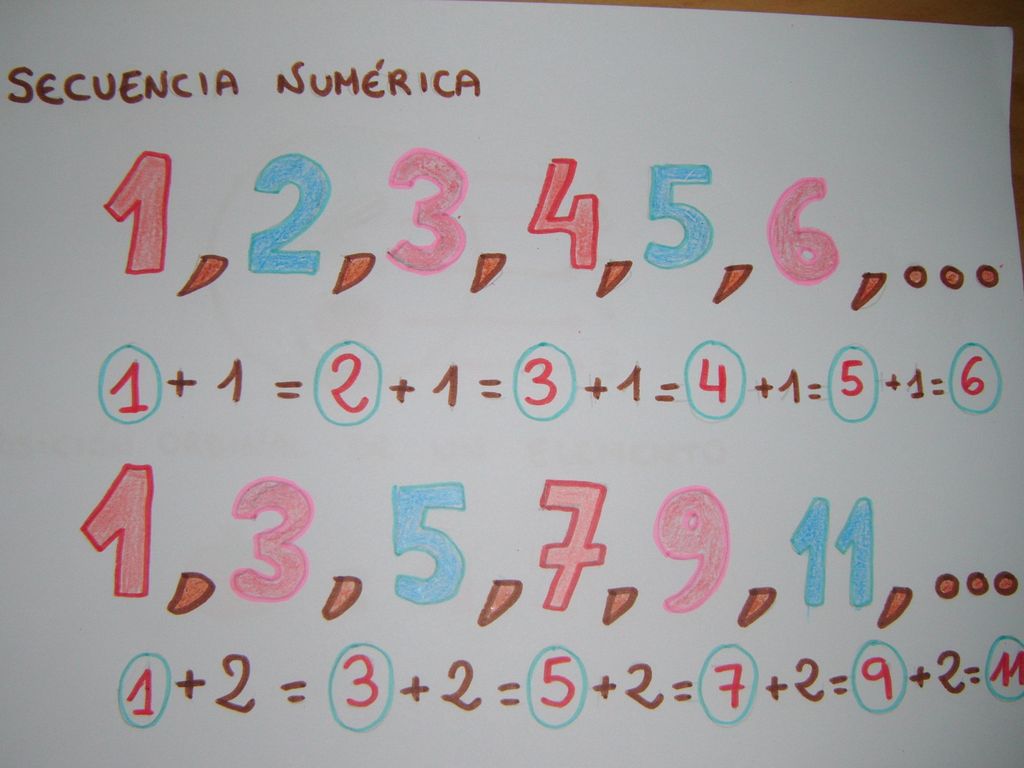 SECUENCIA NUMÉRICA
1, 2, 3, 4, 5, 6, ...
1 + 1 = 2 + 1 = 3 + 1 = 4 + 1 = 5 + 1 = 6
1, 3, 5, 7, 9, 11, ...
1 + 2 = 3 + 2 = 5 + 2 = 7 + 2 = 9 + 2 = 11